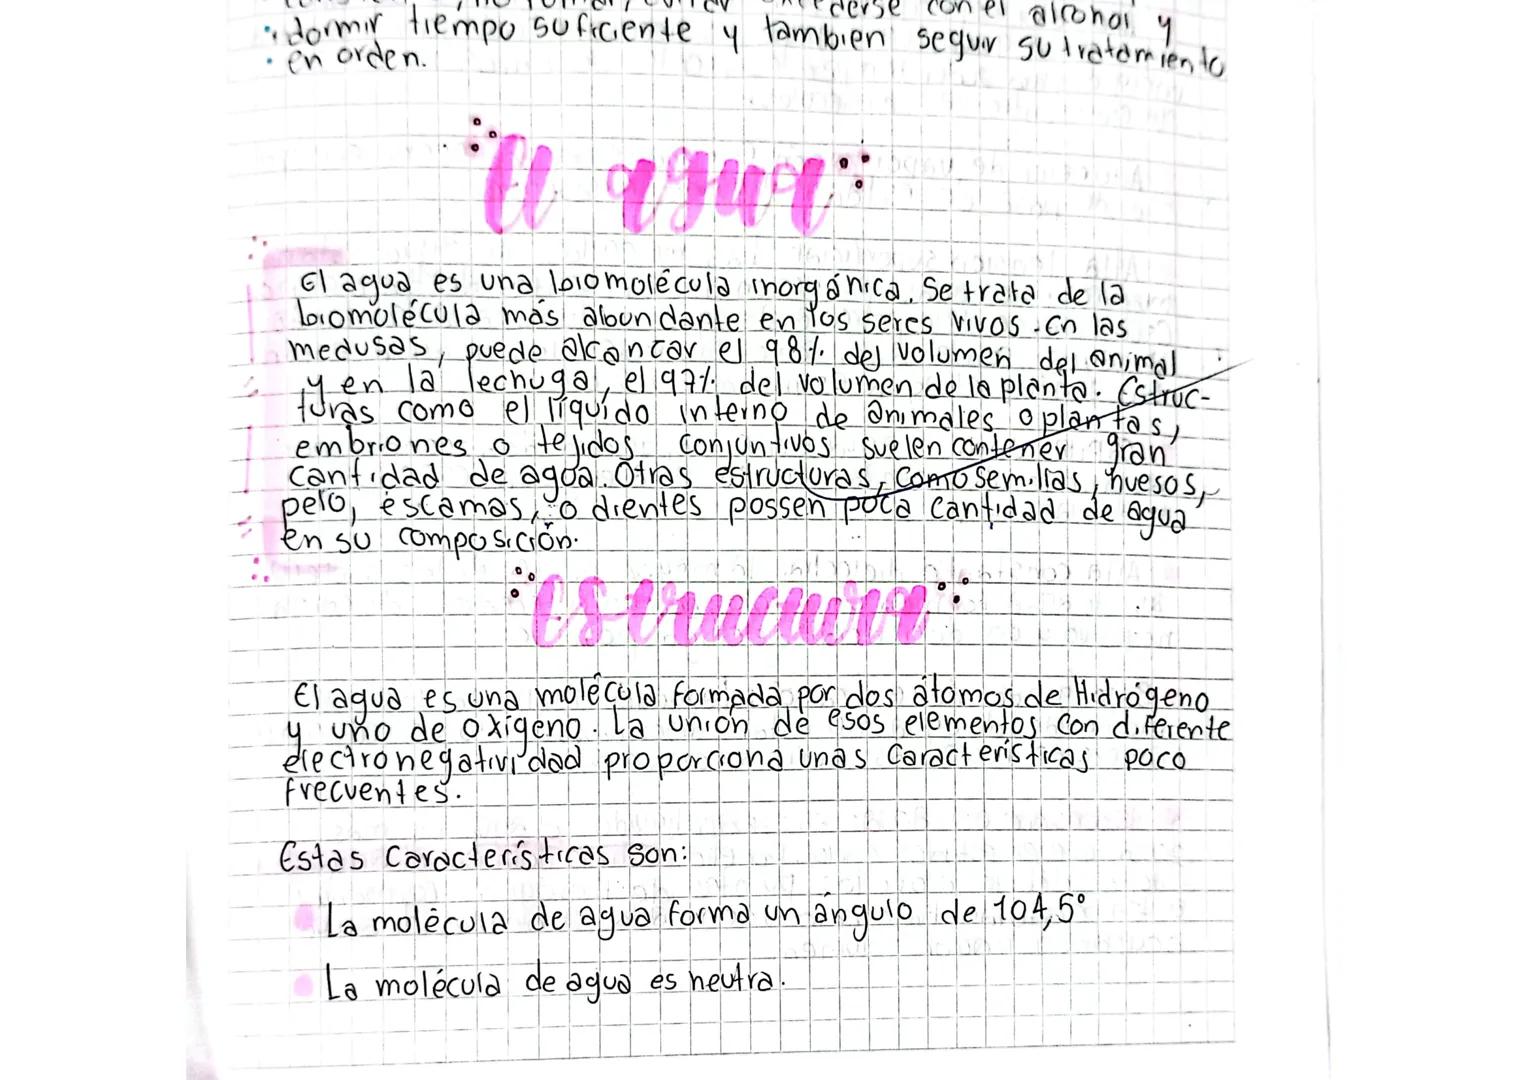 excederse con el alcohol y
dormir tiempo suficiente y tambien seguir su tratamiento
en orden.
El agua
El agua es una biomolécula inorgánica. Se trata de la
biomolécula más abundante en los seres vivos. En las
medusas, puede alcancar el 98% del volumen del animal
y en la lechuga, el 97% del volumen de la planta. Estruc-
turas como el líquido interno de animales o plantas,
embriones o tejidos conjuntivos suelen contener gran
cantidad de agua. Otras estructuras, como semillas, huesos,
pelo, escamas, o dientes possen poca cantidad de agua
en su composición.
Estructura
El agua es una molécula formada por dos átomos de Hidrógeno
y uno de oxígeno. La unión de esos elementos con diferente
electronegatividad proporciona unas características poco
frecuentes.
Estas Características son:
La molécula de agua forma un ángulo de 104,5°
La molécula de agua es neutra.